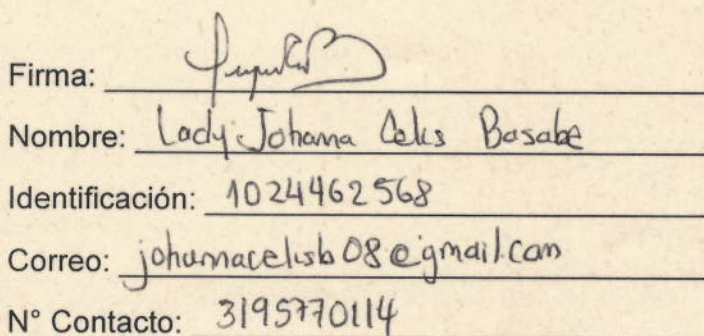 Firma:
Nombre: Lady Johana Celis Basabe
Identificación: 1024462568
Correo: johannacelisb08@gmail.com
N° Contacto: 3195770114